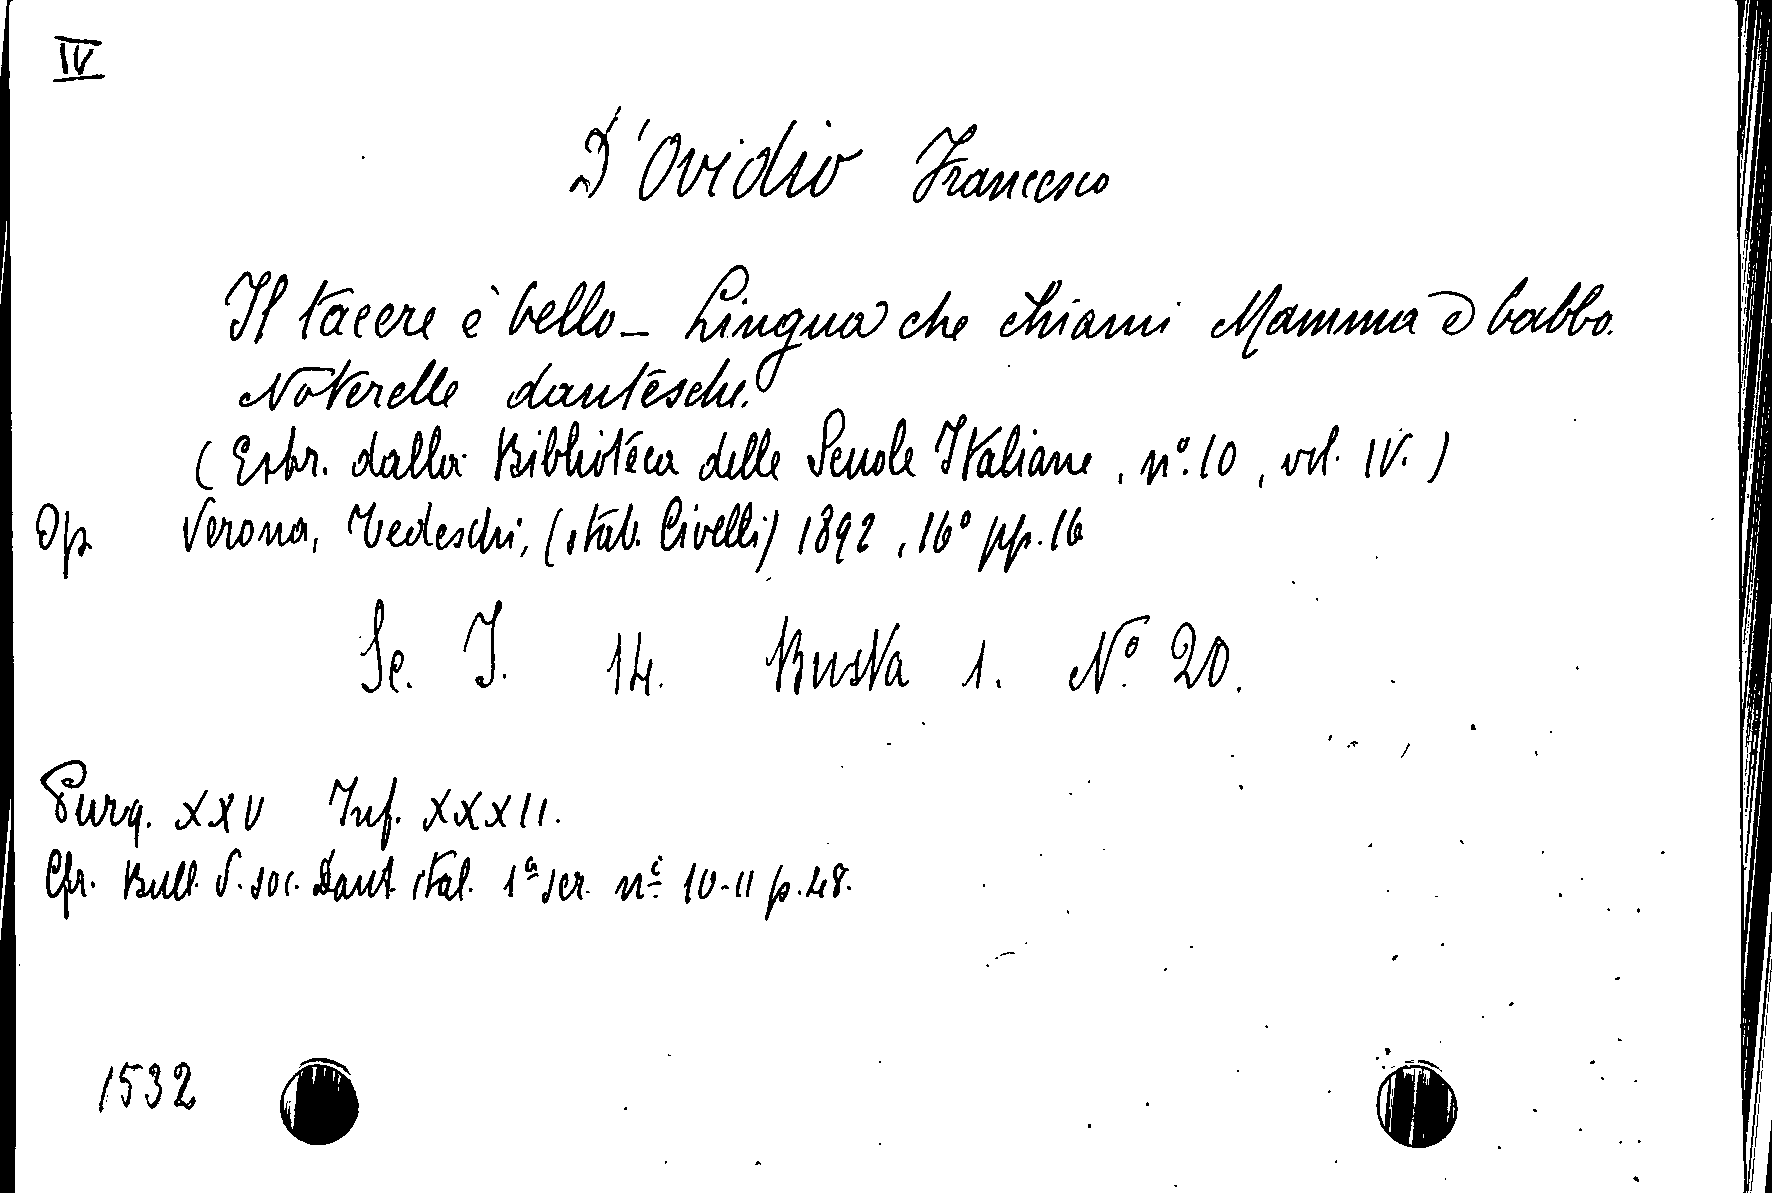 IV
D'Ovidio Francesco
Il tacere è bello - Lingua che chiami Mamma e babbo.
Noterelle dantesche.
(Estr. dalla Biblioteca delle Scuole Italiane, n.º 10, vol. IV.)
Op Verona, Tedeschi, (stab. Civelli) 1892, 16º pp. 16
Sc. I. 14. Busta 1. Nº 20.
Purg. XXV Inf. XXXII.
Cfr. Bull. d. soc. Dant. ital. 1ª ser. nⁱ 10-11 p. 48.
1532